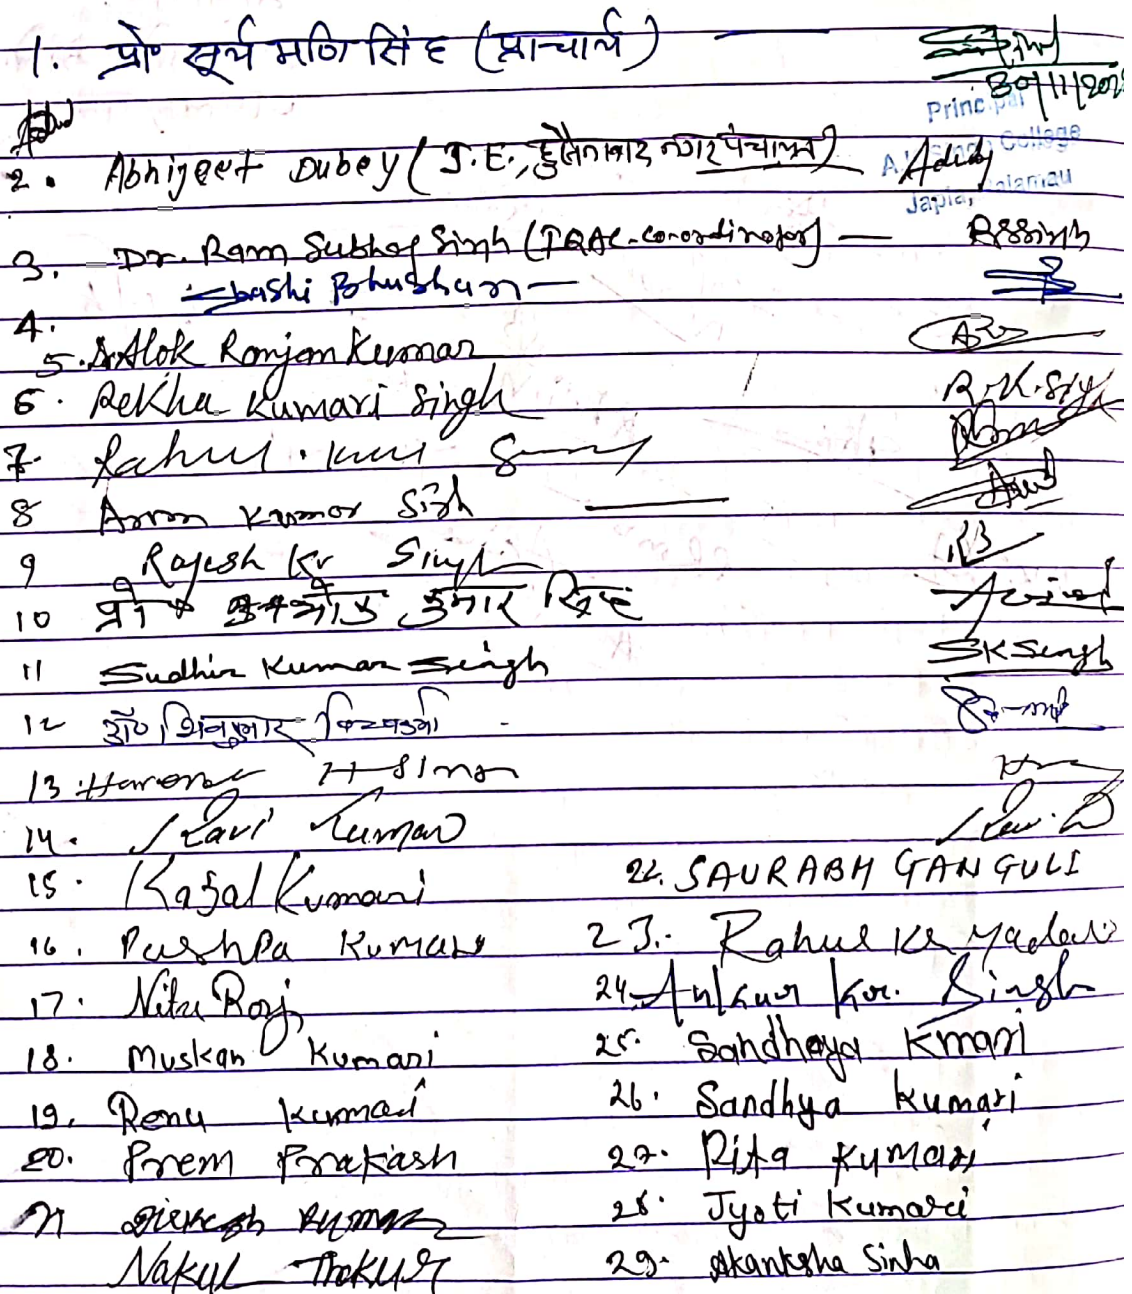 1. प्रो० सूर्य मणि सिंह (प्राचार्य)
30/11/202
Principal
College
Japla, Palamau
2. Abhijeet Dubey (J.E., हुसैनाबाद नगर पंचायत)
3. Dr. Ram Subhag Singh (IQAC-co-ordinator) — RSSingh
4. Shashi Bhushan —
5. Dr. Alok Ranjan Kumar
6. Rekha Kumari Singh R.K. Singh
7. Rahul
8 Arun Kumar Singh
9 Rajesh Kr Singh
10 प्रो० कुमार सिंह
11 Sudhir Kumar Singh SK Singh
12 डॉ० शिवकुमार विश्वकर्मा
13.
14. Ravi Kumar
15. Kajal Kumari
16. Pushpa Kumari
17. Nitu Raj
18. Muskan Kumari
19. Renu Kumari
20. Prem Prakash
21 Kumar
Nakul Thakur
22. SAURABH GANGULI
23. Rahul Kr Yadav
24. Ankur Kr. Singh
25. Sandhaya Kmari
26. Sandhya Kumari
27. Rita Kumari
28. Jyoti Kumari
29. Akanksha Sinha